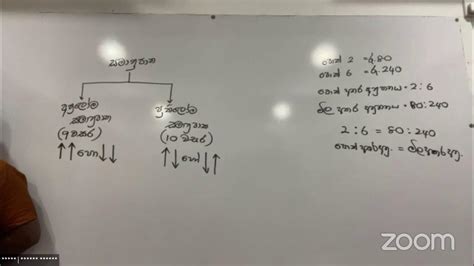 සමානුපාත
අනුලෝම
සමානුපාත
(9 වසර)
↑↑ හෝ ↓↓
ප්‍රතිලෝම
සමානුපාත
(10 වසර)
↑↓ හෝ ↓↑
පෙන් 2 = රු.80
පෙන් 6 = රු.240
පෙන් අතර අනුපාතය = 2:6
මිල අතර අනුපාතය = 80:240
2:6 = 80:240
පෙන් අතර අනු. = මිල අතර අනු.
zoom